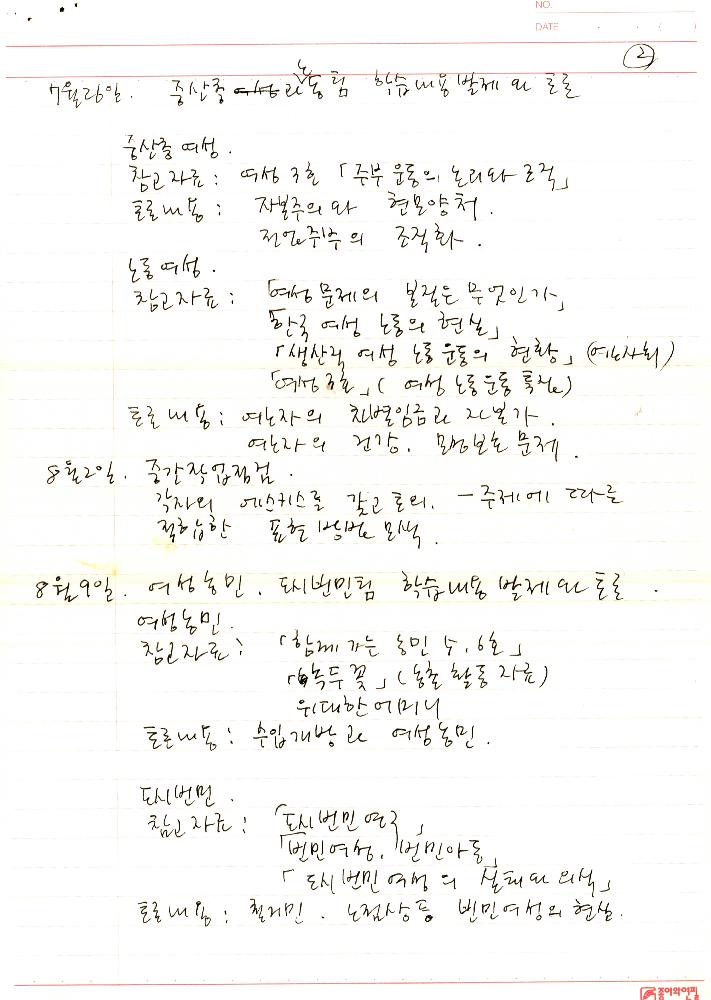 NO.
DATE . . ( )
②
7월26일. 중산층 여성과 노동팀 학습내용 발제와 토론
중산층 여성.
참고자료 : 여성 3호 「주부운동의 논리와 조직」
토론내용 : 자본주의와 현모양처.
전업주부의 조직화.
노동여성.
참고자료 : 「여성문제의 본질은 무엇인가」
「한국 여성 노동의 현실」
「생산직 여성 노동운동의 현황」 (여는사회)
「여성3호」 ( 여성노동운동 특집)
토론내용 : 여노자의 차별임금과 저분가.
여노자의 건강. 모성보호 문제.
8월2일. 중간작업점검.
각자의 에스키스를 갖고 토의. - 주제에 따른
적합한 표현방법 모색.
8월9일. 여성농민. 도시빈민팀 학습내용 발제와 토론.
여성농민.
참고자료 : 「함께 가는 농민 5, 6호」
「녹두꽃」 (농촌 활동 자료)
위대한 어머니
토론내용 : 수입개방과 여성농민.
도시빈민.
참고자료 : 「도시빈민연구」
「빈민여성, 빈민아동」
「도시빈민여성의 실태와 의식」
토론내용 : 철거민. 노점상등 빈민여성의 현실.
종이와연필